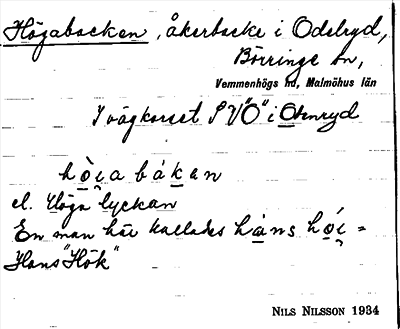 Högabacken, åkerbacke i Odelryd,
Börringe sn,
Vemmenhögs hd, Malmöhus län
I vägkorset S V "Ö" i Odenryd
hò̤i̯a bákan
el. Höga lyckan
En man här kallades hàns hö́i =
Hans "Hök"
NILS NILSSON 1934